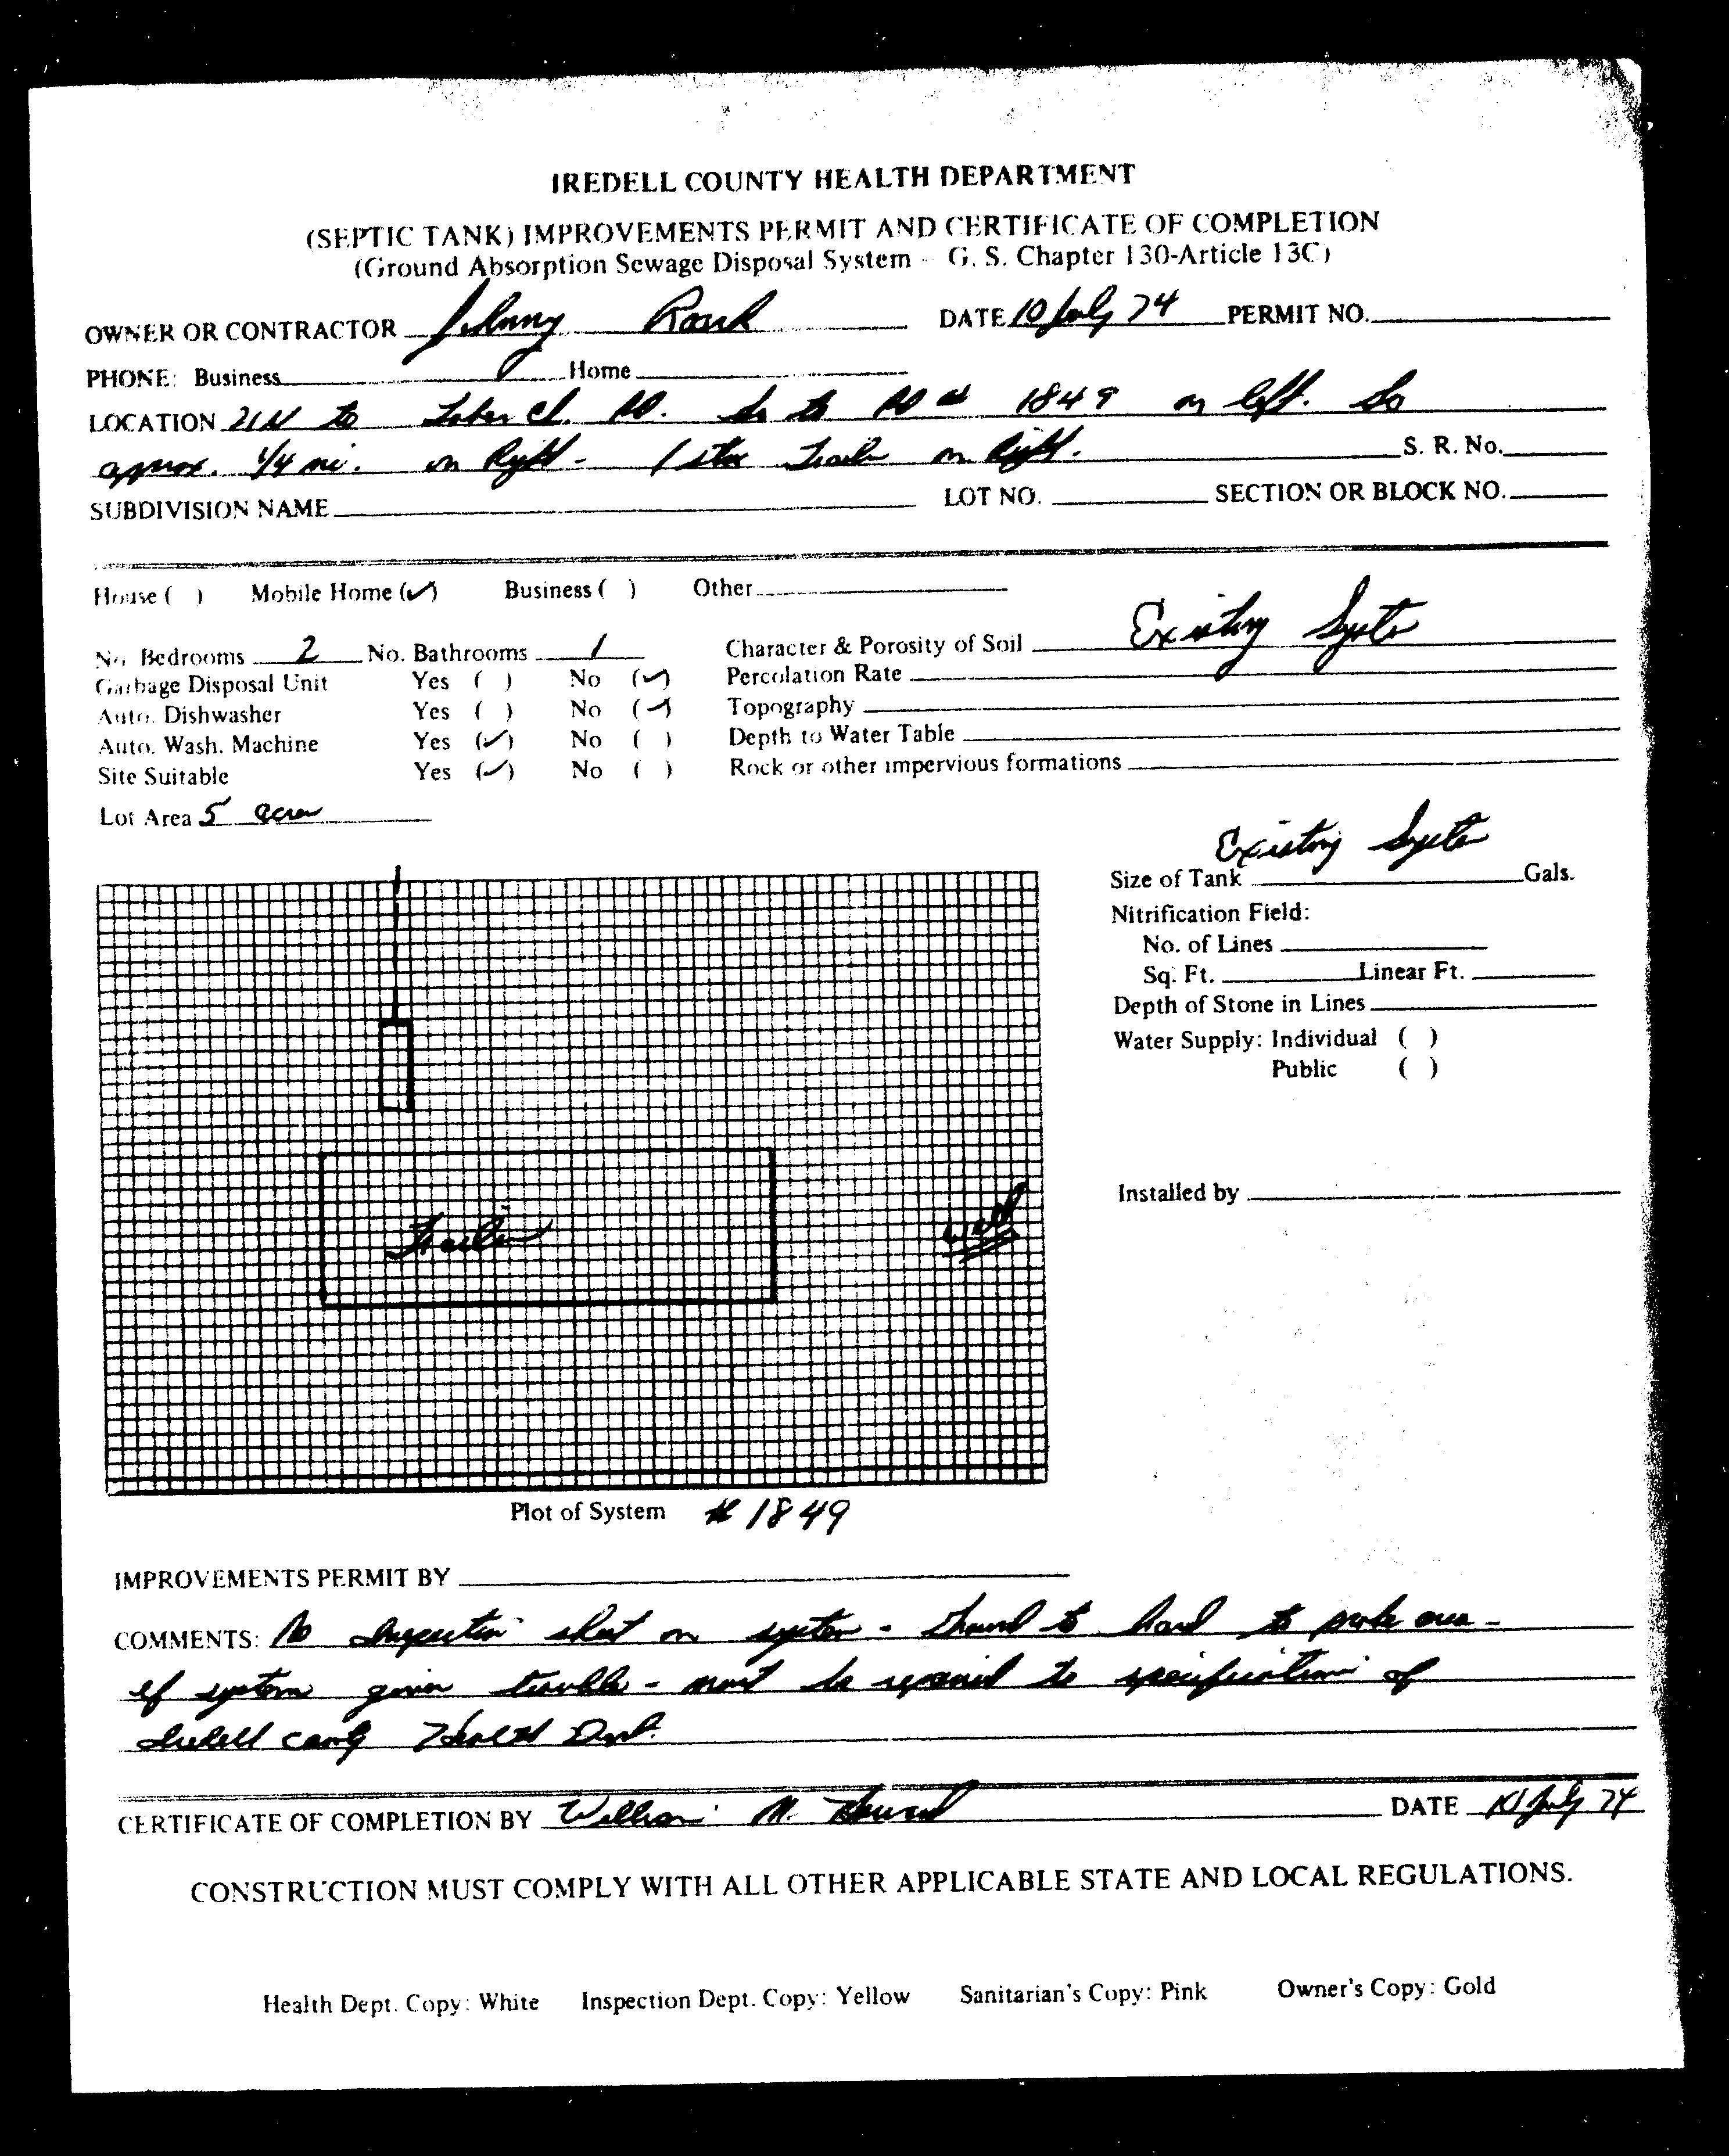 IREDELL COUNTY HEALTH DEPARTMENT
(SEPTIC TANK) IMPROVEMENTS PERMIT AND CERTIFICATE OF COMPLETION
(Ground Absorption Sewage Disposal System - G. S. Chapter 130-Article 13C)
OWNER OR CONTRACTOR Johnny Roark DATE 10 July 74 PERMIT NO.
PHONE: Business Home
LOCATION 21 N to Ch. RD. Go to RD # 1849 on left. Go
approx. 1/4 mi. on Right - 1st Trailer on Right. S. R. No.
SUBDIVISION NAME LOT NO. SECTION OR BLOCK NO.
House ( ) Mobile Home (✓) Business ( ) Other
No. Bedrooms 2 No. Bathrooms 1 Character & Porosity of Soil Existing System
Garbage Disposal Unit Yes ( ) No (✓) Percolation Rate
Auto. Dishwasher Yes ( ) No (✓) Topography
Auto. Wash. Machine Yes (✓) No ( ) Depth to Water Table
Site Suitable Yes (✓) No ( ) Rock or other impervious formations
Lot Area 5 acres
Existing System
Size of Tank Gals.
Nitrification Field:
No. of Lines
Sq. Ft. Linear Ft.
Depth of Stone in Lines
Water Supply: Individual ( )
Public ( )
Installed by
Trailer
Well
Plot of System # 1849
IMPROVEMENTS PERMIT BY
COMMENTS: No Inspection sheet on system - Ground to hard to probe area -
if system gives trouble - must be repaired to specifications of
Iredell County Health Dept.
CERTIFICATE OF COMPLETION BY William M. DATE 10 July 74
CONSTRUCTION MUST COMPLY WITH ALL OTHER APPLICABLE STATE AND LOCAL REGULATIONS.
Health Dept. Copy: White Inspection Dept. Copy: Yellow Sanitarian's Copy: Pink Owner's Copy: Gold